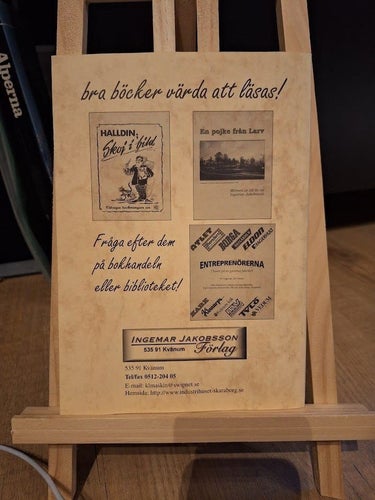 Alperna
bra böcker värda att läsas!
HALLDIN,
Skoj i bild
En pojke från Larv
Fråga efter dem
på bokhandeln
eller biblioteket!
ENTREPRENÖRERNA
TYCO
INGEMAR JAKOBSSON
535 91 KVÄNUM
Förlag
535 91 Kvänum
Tel/fax 0512-204 05
E-mail: klmaskin@swipnet.se
Hemsida: http://www.industrihuset-skaraborg.se